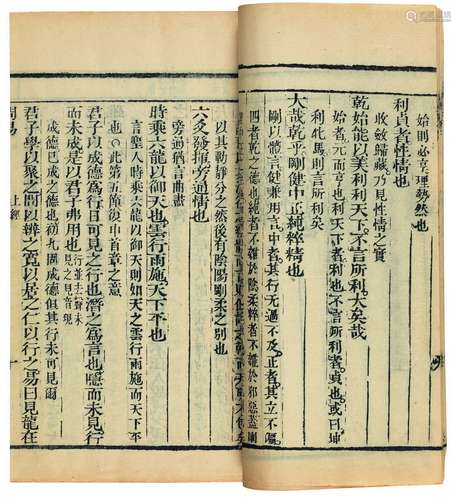 始則必亨理勢然也
利貞者性情也
收斂歸藏乃見性情之實
乾始能以美利利天下不言所利大矣哉
始者元而亨也利天下者利也不言所利者貞也或曰坤
利牝馬則言所利矣
大哉乾乎剛健中正純粹精也
剛以體言健兼用言中者其行无過不及正者其立不偏
四者乾之德也純者不雜於陰柔粹者不雜於邪惡蓋剛
以其動靜分之然後有陰陽剛柔之別也
六爻發揮旁通情也
旁通猶言曲盡
時乘六龍以御天也雲行雨施天下平也
言聖人時乘六龍以御天則如天之雲行雨施而天下平
也○此第五節復申首章之意
君子以成德爲行日可見之行也潛之爲言也隱而未見行
而未成是以君子弗用也行並去聲未見音現
成德已成之德也初九固成德但其行未可見爾
君子學以聚之問以辨之寬以居之仁以行之易曰見龍在
周易 上經